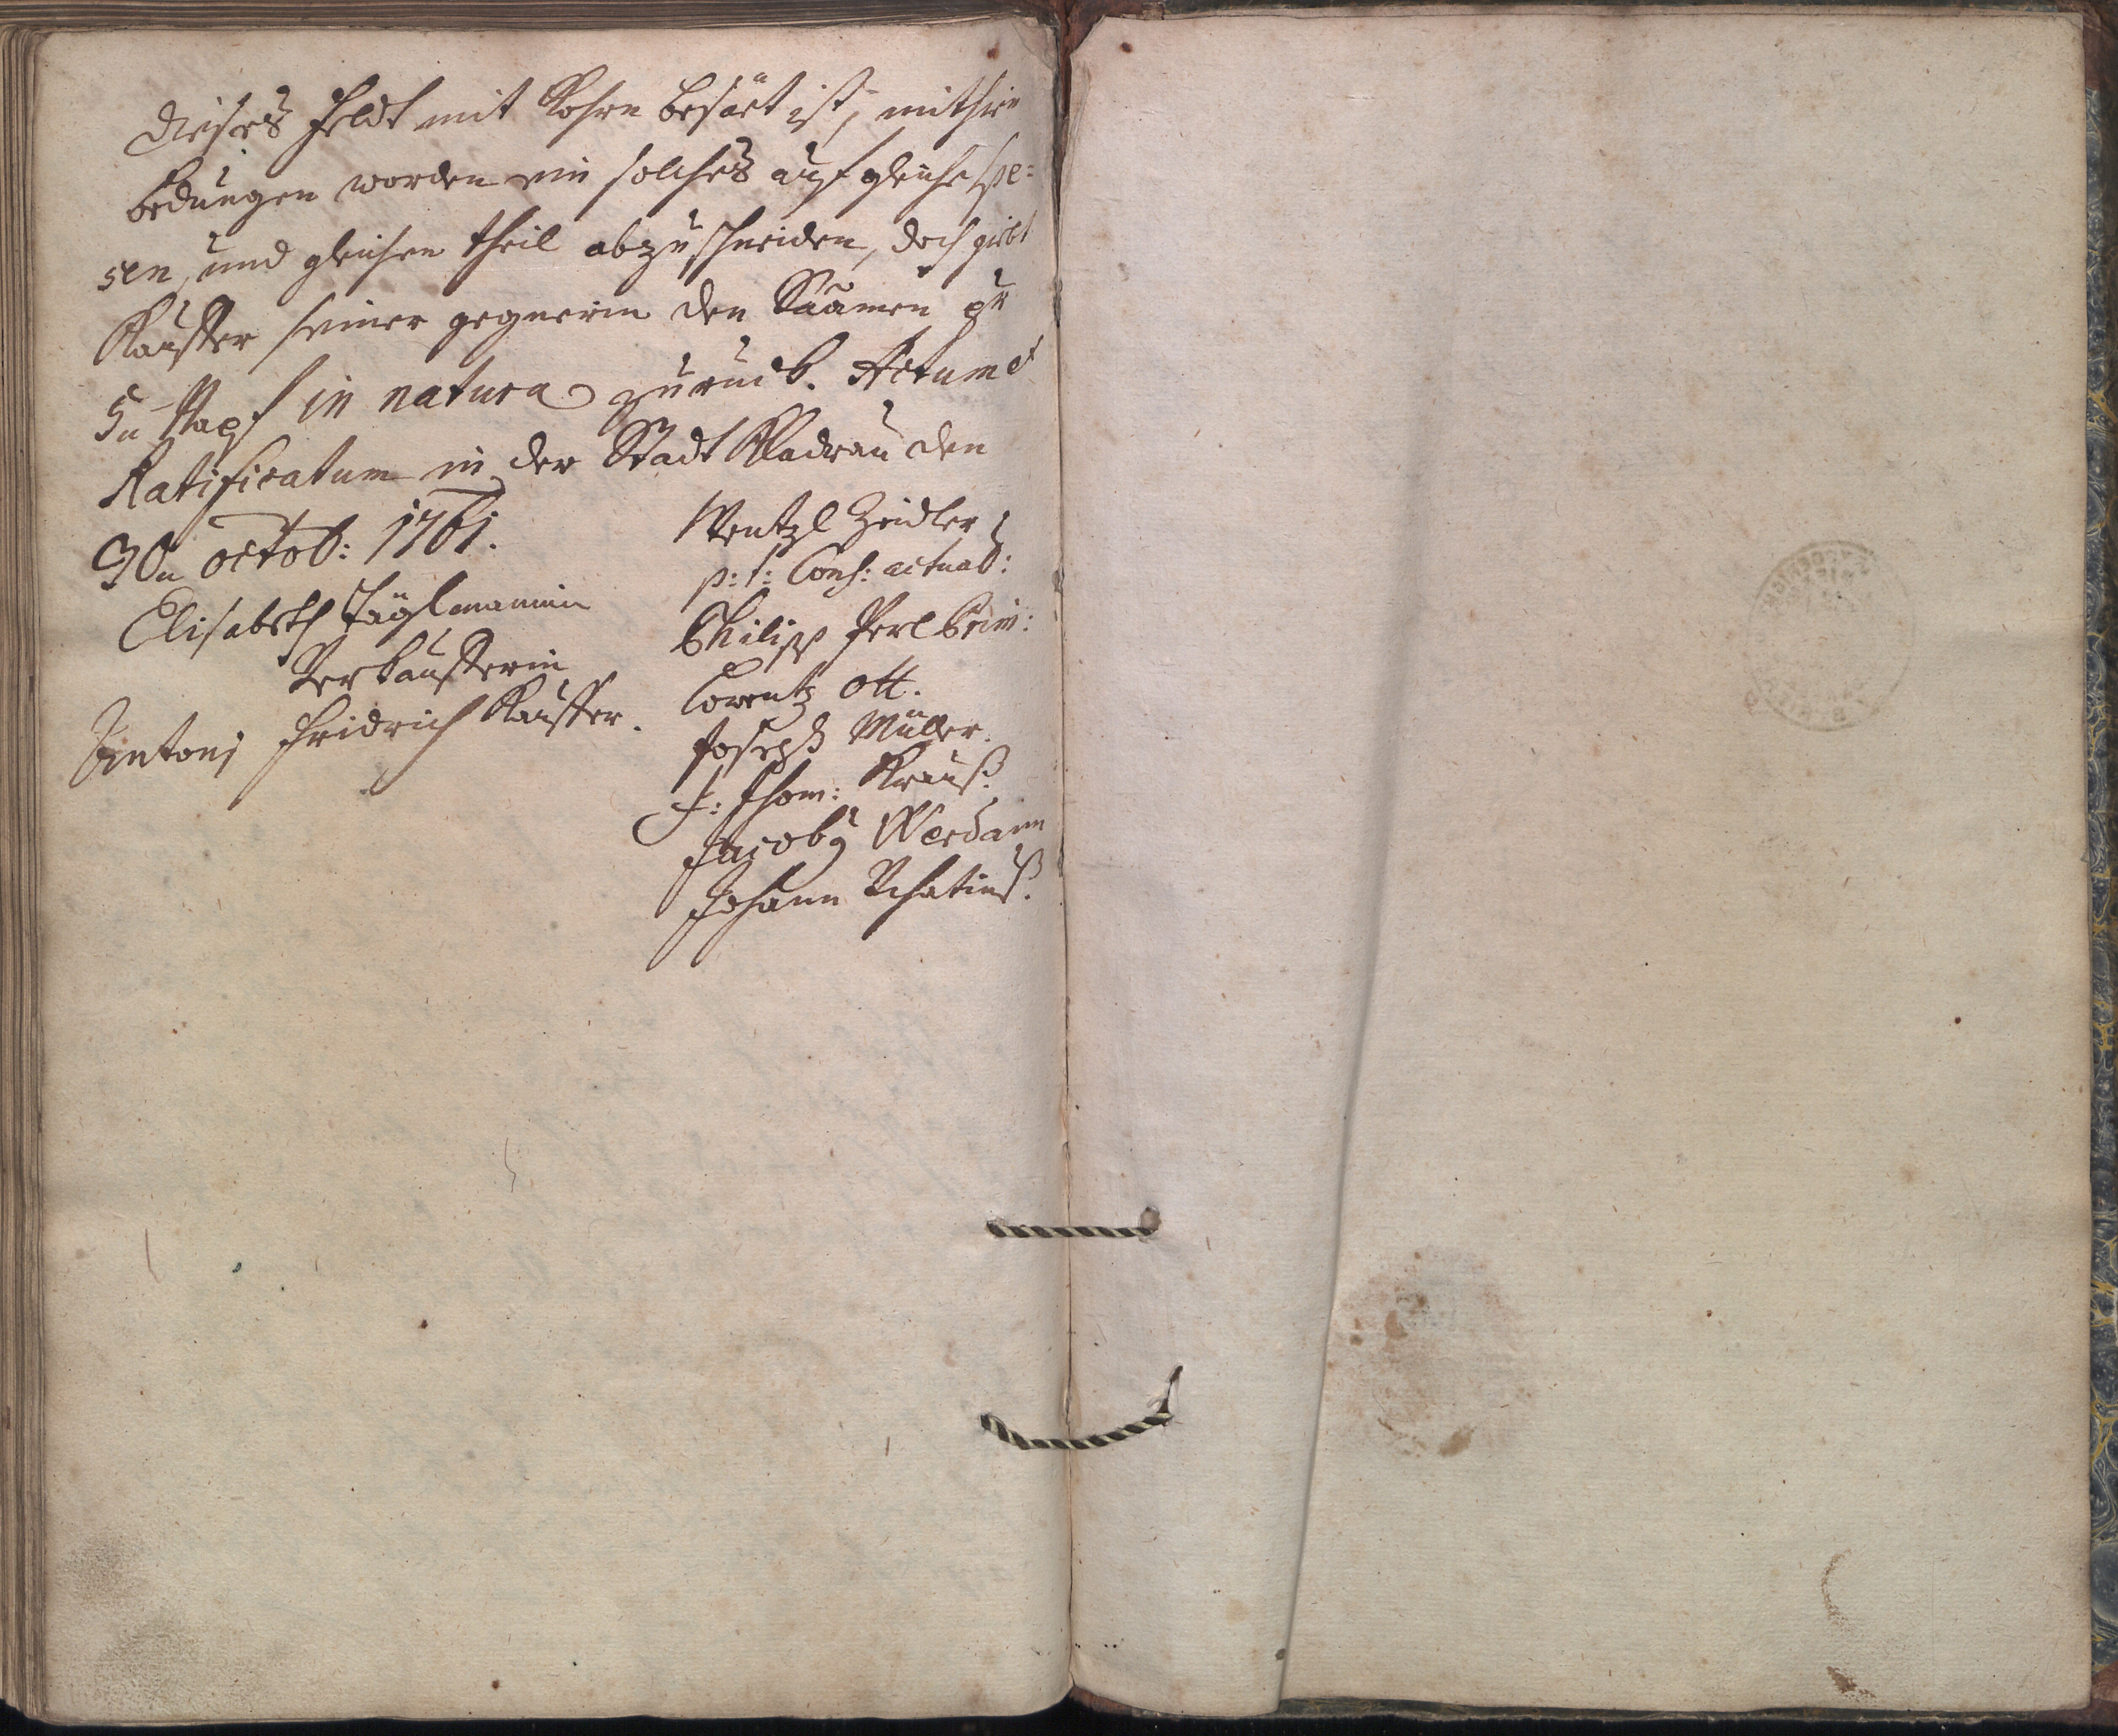 dieses Feldt mit Kohrn besäet ist, mithin
bedungen worden ein solches auf gleiche spe=
sen, und gleichen theil abzuschneiden, doch giebt
Kauffer seiner gegnerin den Saamen zu
5 Napf in natura zurück. Actum et
Ratificatum in der Stadt Kladrau den
30 octob: 1761.
Elisabeth
Verkaufferin
Antoni Fridrich Kauffer.
Wentzl Zeidler
p: t: Cons: actual:
Philipp Perl Prim:
Lorentz Ott.
Joseph Müller.
J: Thom: Krauß.
Jacoby
Johann